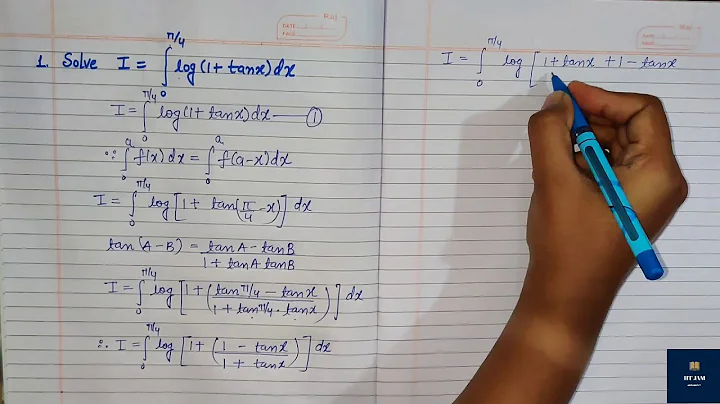 RAJ
DATE
PAGE
1. Solve I = ∫₀^{π/4} log(1+tanx)dx
I = ∫₀^{π/4} log(1+tanx)dx —— ①
∵ ∫₀^a f(x)dx = ∫₀^a f(a-x)dx
I = ∫₀^{π/4} log[1+ tan(π/4 -x)] dx
tan(A-B) = (tanA - tanB)/(1+tanA tanB)
I = ∫₀^{π/4} log[1+((tanπ/4 - tanx)/(1+tanπ/4 . tanx))] dx
∴ I = ∫₀^{π/4} log[1+((1 - tanx)/(1 + tanx))] dx
I = ∫₀^{π/4} log[1+tanx +1 - tanx
IIT JAM